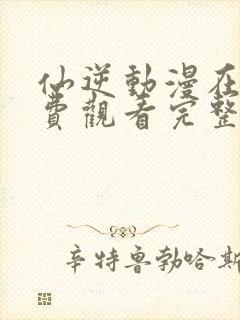 仙逆動漫在
費觀看完整
辛特魯勃哈斯